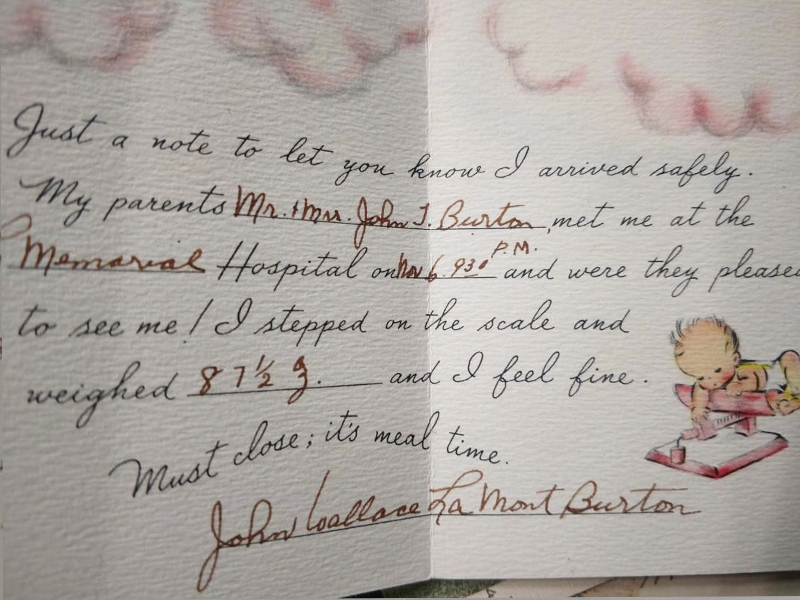 Just a note to let you know I arrived safely.
My parents Mr. & Mrs. John T. Burton, met me at the
Memorial Hospital on Nov 6. 930 P.M. and were they pleased
to see me! I stepped on the scale and
weighed 8 7½ and I feel fine.
Must close; it's meal time.
John Wallace La Mont Burton